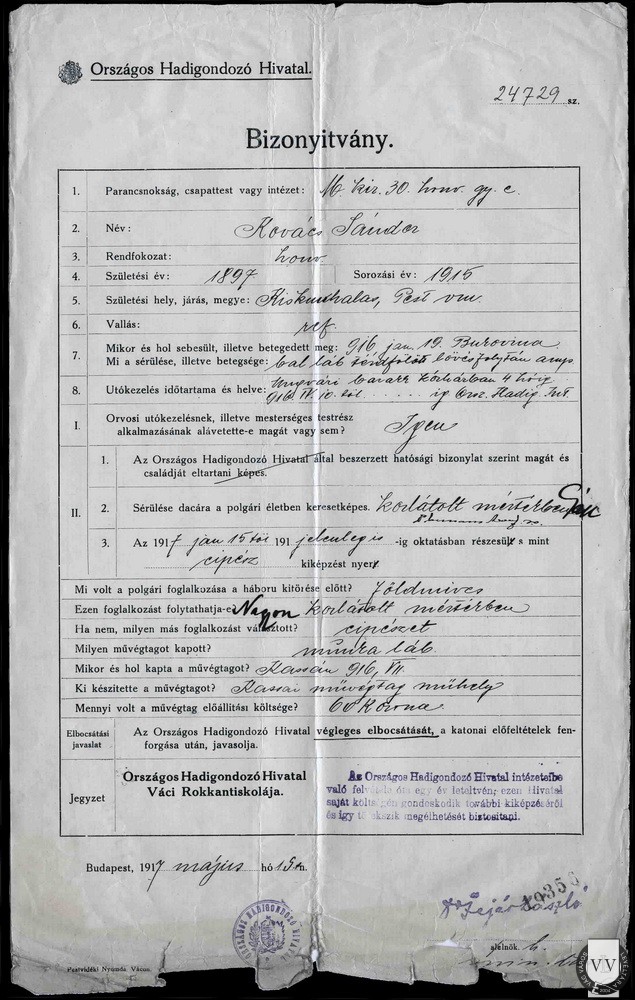 Országos Hadigondozó Hivatal.
24729 sz.
Bizonyitvány.
1. Parancsnokság, csapattest vagy intézet: M. kir. 30. honv. gy. e.
2. Név: Kovács Sándor
3. Rendfokozat: honv.
4. Születési év: 1897 Sorozási év: 1915
5. Születési hely, járás, megye: Kiskunhalas, Pest vm.
6. Vallás: ref.
7. Mikor és hol sebesült, illetve betegedett meg: 916 jan. 19. Bukovina
Mi a sérülése, illetve betegsége: bal láb lövés folytán amp.
8. Utókezelés időtartama és helye: Ungvári barakk kórházban 4 hóig
916 IV. 10. től ig Orsz. Hadig. Hiv.
I. Orvosi utókezelésnek, illetve mesterséges testrész
alkalmazásának alávetette-e magát vagy sem? Igen
II. 1. Az Országos Hadigondozó Hivatal által beszerzett hatósági bizonylat szerint magát és
családját eltartani képes.
2. Sérülése dacára a polgári életben keresetképes. korlátolt mértékben
3. Az 1917 jan 15 től 191 jelenleg is -ig oktatásban részesült s mint
cipész kiképzést nyert
Mi volt a polgári foglalkozása a háboru kitörése előtt? Földmives
Ezen foglalkozást folytathatja-e? Nagyon korlátolt mértékben
Ha nem, milyen más foglalkozást választott? cipészet
Milyen művégtagot kapott? munka láb.
Mikor és hol kapta a művégtagot? Kassán 916, VII.
Ki készitette a művégtagot? Kassai művégtag műhely
Mennyi volt a művégtag előállitási költsége? 60 Korona.
Elbocsátási javaslat
Az Országos Hadigondozó Hivatal végleges elbocsátását, a katonai előfeltételek fen-
forgása után, javasolja.
Jegyzet
Országos Hadigondozó Hivatal
Váci Rokkantiskolája.
Az Országos Hadigondozó Hivatal intézeteibe
való felvétele óta egy év leteltével, ezen Hivatal
saját költségén gondoskodik további kiképzéséről
és igy tekszik megélhetését biztositani.
Budapest, 1917 május hó 15-n.
Dr. Fejér László
alelnök h.
ORSZÁGOS HADIGONDOZÓ HIVATAL
Pestvidéki Nyomda Vácon.
VV